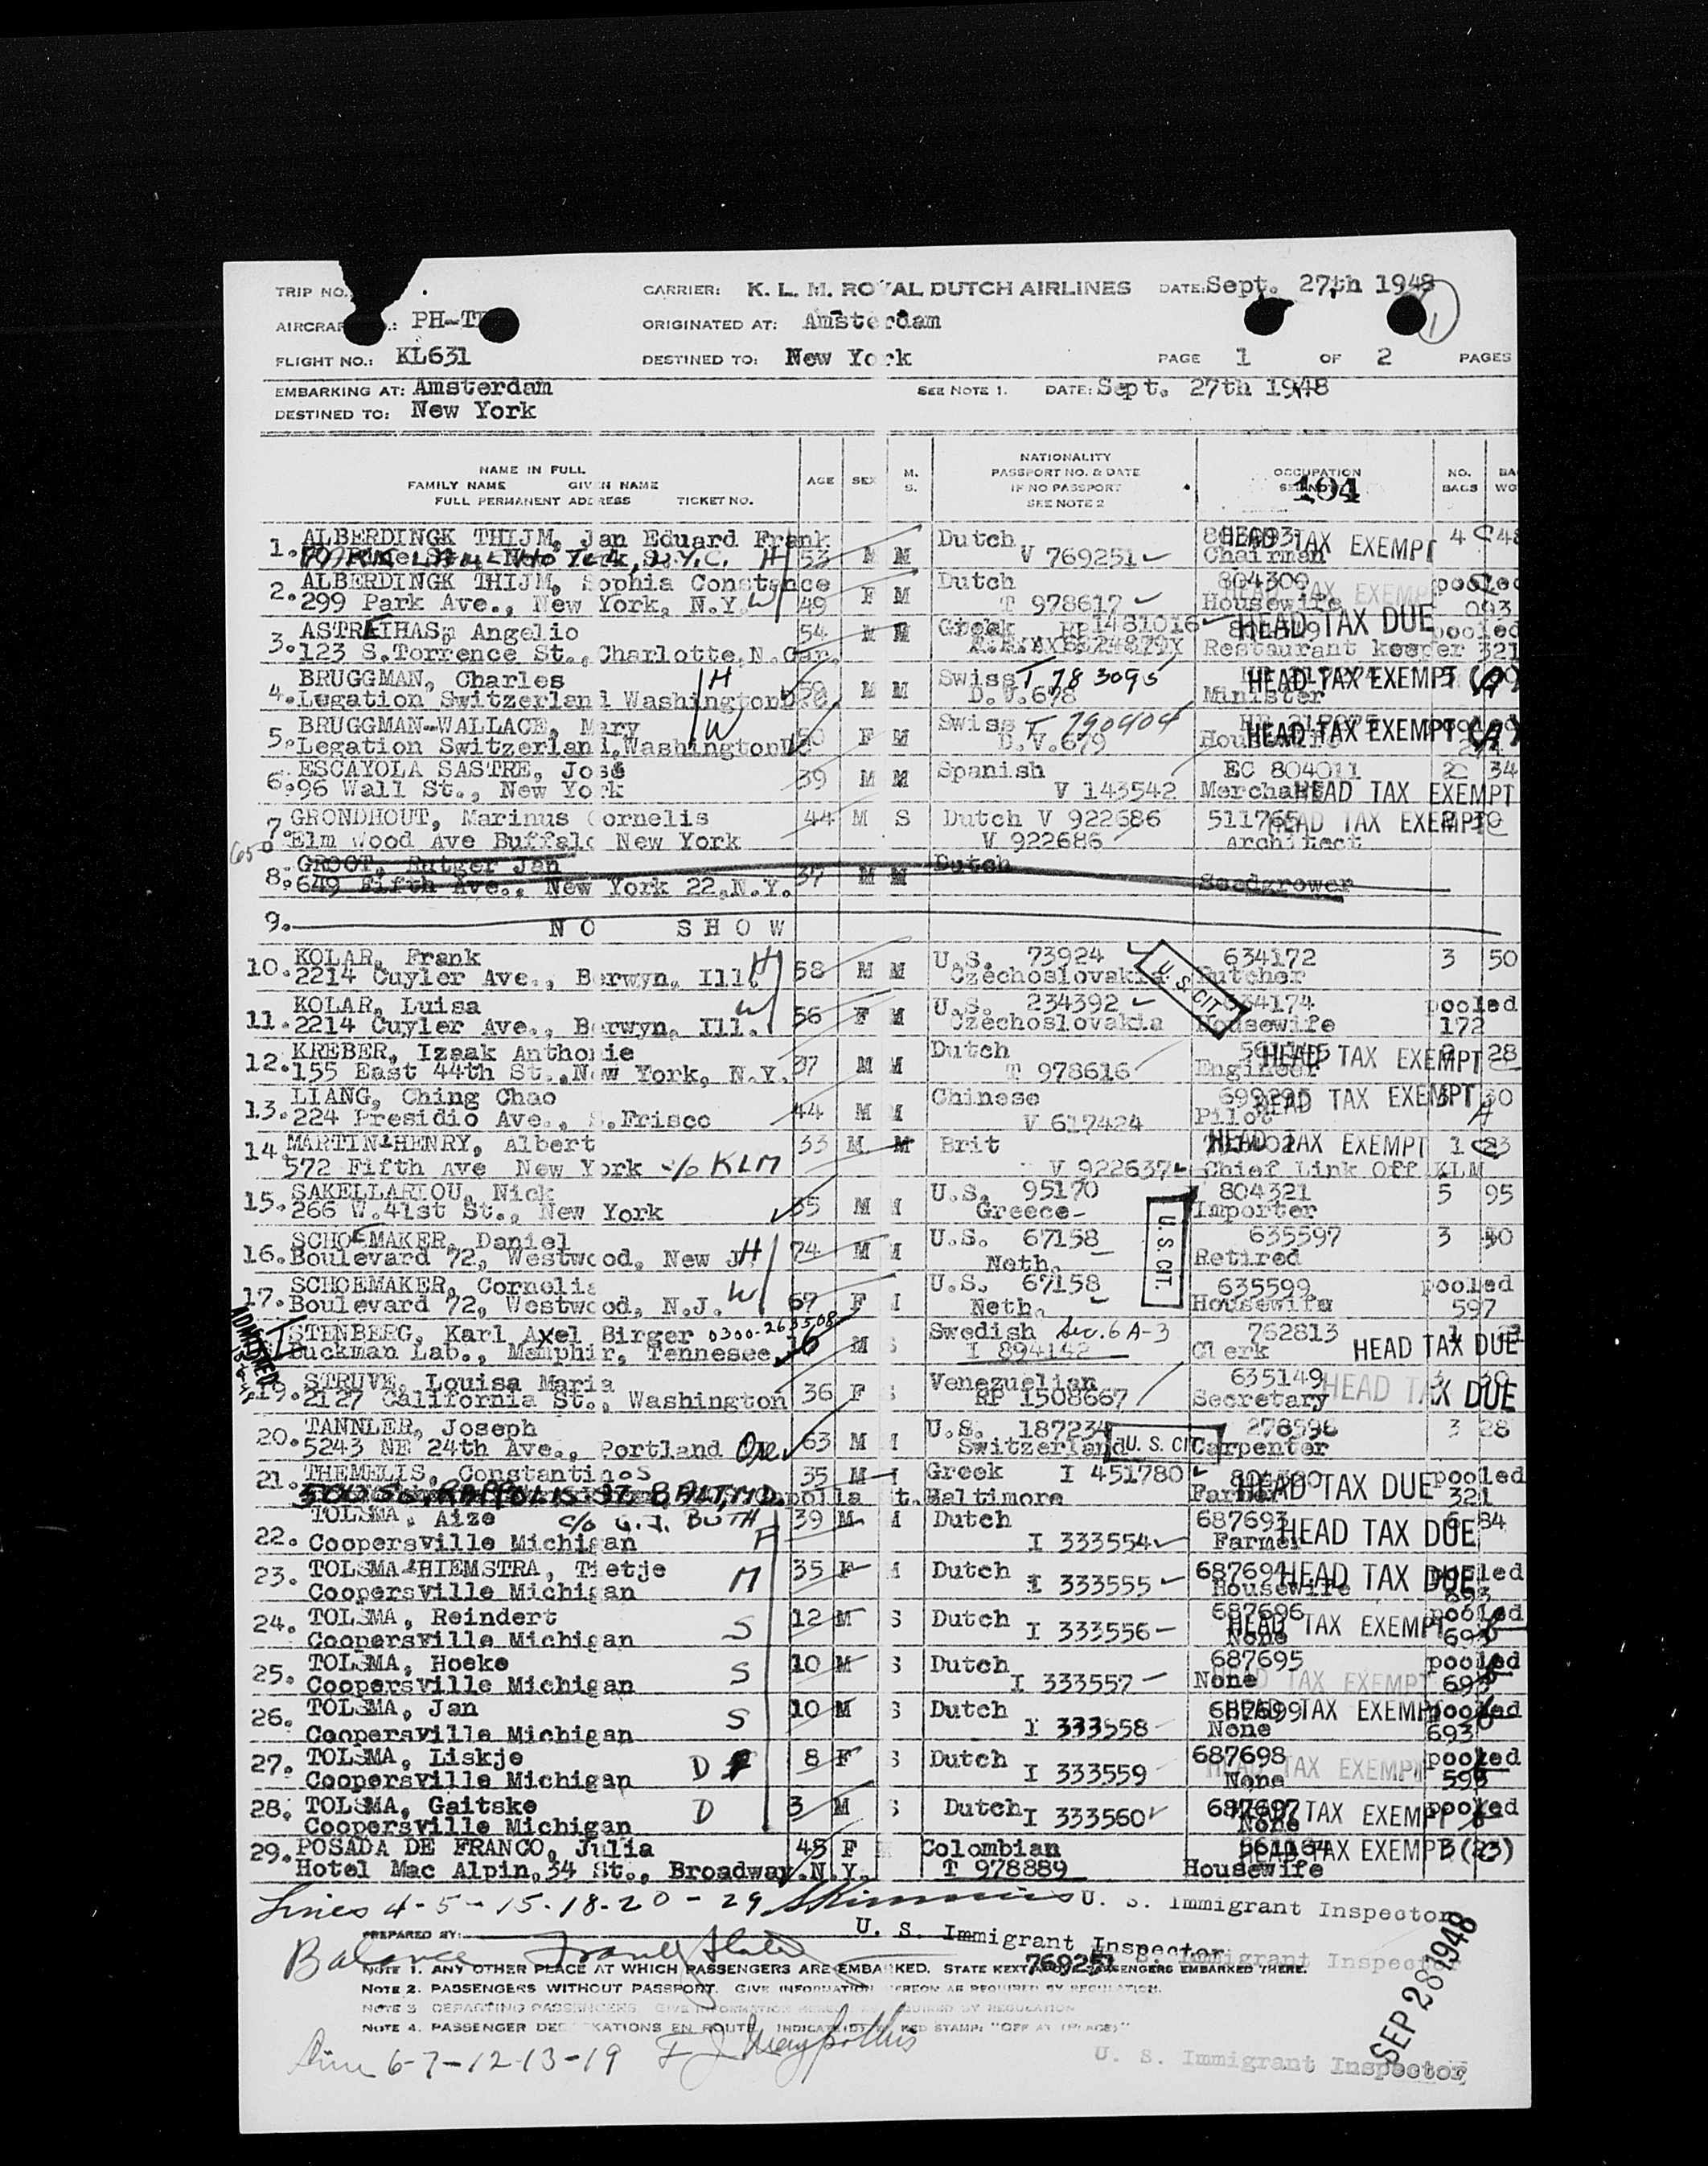 TRIP NO. CARRIER: K. L. M. ROYAL DUTCH AIRLINES DATE: Sept. 27th 1948
PH- ORIGINATED AT: Amsterdam 1
FLIGHT NO.: KL631 DESTINED TO: New York PAGE 1 OF 2 PAGES
EMBARKING AT: Amsterdam SEE NOTE 1. DATE: Sept. 27th 1948
DESTINED TO: New York
NAME IN FULL
FAMILY NAME GIVEN NAME
FULL PERMANENT ADDRESS TICKET NO.
AGE SEX M. S.
NATIONALITY
PASSPORT NO. & DATE
IF NO PASSPORT
SEE NOTE 2
OCCUPATION
104
NO. BAGS
1. ALBERDINGK THIJM, Jan Eduard Frank Dutch HEAD TAX EXEMPT 4
H 53 M M V 769251 Chairman
2. ALBERDINGK THIJM, Sophia Constance Dutch 804300 HEAD TAX EXEMPT pooled
299 Park Ave., New York, N.Y. W 49 F M T 978617 Housewife 093
3. ASTREIHAS, Angelio 54 M M Greek RP 1481016 HEAD TAX DUE pooled
123 S.Torrence St., Charlotte, N.Car. Restaurant keeper 321
4. BRUGGMAN, Charles H Swiss T 783095 HEAD TAX EXEMPT
Legation Switzerland Washington M M D.V.678 Minister
5. BRUGGMAN-WALLACE, Mary W Swiss T 790404 HEAD TAX EXEMPT
Legation Switzerland, Washington 50 F M D.V.679 Housewife
6. ESCAYOLA SASTRE, José 39 M M Spanish EC 804011 2 34
96 Wall St., New York V 143542 Merchant HEAD TAX EXEMPT
7. GRONDHOUT, Marinus Cornelis 44 M S Dutch V 922686 511765 HEAD TAX EXEMPT
650 Elm Wood Ave Buffalo New York V 922686 Architect
8. GROOT, Rutger Jan Dutch
649 Fifth Ave., New York 22, N.Y. 37 M M Seedgrower
9. NO SHOW
10. KOLAR, Frank H U.S. 73924 634172 3 50
2214 Cuyler Ave., Berwyn, Ill. 58 M M Czechoslovakia U. S. CIT. Butcher
11. KOLAR, Luisa W U.S. 234392 634174 pooled
2214 Cuyler Ave., Berwyn, Ill. 56 F M Czechoslovakia Housewife 172
12. KREBER, Izaak Anthonie Dutch HEAD TAX EXEMPT 28
155 East 44th St., New York, N.Y. 37 M M T 978616 Engineer
13. LIANG, Ching Chao Chinese HEAD TAX EXEMPT
224 Presidio Ave., S.Frisco 44 M M V 617424 Pilot
14. MARTIN-HENRY, Albert 33 M M Brit HEAD TAX EXEMPT 1 23
572 Fifth Ave New York c/o KLM V 922637 Chief Link Off KLM
15. SAKELLARIOU, Nick U.S. 95170 804321 5 95
266 W.41st St., New York 55 M M Greece U. S. CIT. Importer
16. SCHOEMAKER, Daniel U.S. 67158 635597 3
Boulevard 72, Westwood, New J. H 74 M M Neth. Retired
17. SCHOEMAKER, Cornelia U.S. 67158 635599 pooled
Boulevard 72, Westwood, N.J. W 67 F M Neth. Housewife 597
STENBERG, Karl Axel Birger 0300-263508 Swedish Sec. 6 A-3 762813
Buckman Lab., Memphir, Tennesee M S I 894142 Clerk HEAD TAX DUE
ADMITTED
19. STRUVE, Louisa Maria Venezuelian 635149 HEAD TAX DUE
2127 California St., Washington 36 F S RP 1508667 Secretary
20. TANNLER, Joseph U.S. 187234 278596 3 28
5243 NE 24th Ave., Portland Ore 63 M M Switzerland U. S. CIT. Carpenter
21. THEMELIS, Constantinos 35 M Greek I 451780 HEAD TAX DUE pooled
St. Baltimore Farmer 321
22. TOLSMA, Aize c/o G.J. BUTH 39 M M Dutch 687693 HEAD TAX DUE 84
Coopersville Michigan F I 333554 Farmer
23. TOLSMA-HIEMSTRA, Tietje M 35 F M Dutch 687694 HEAD TAX DUE pooled
Coopersville Michigan I 333555 Housewife 693
24. TOLSMA, Reindert S 12 M S Dutch 687696 HEAD TAX EXEMPT pooled
Coopersville Michigan I 333556 None 693
25. TOLSMA, Hoeke S 10 M S Dutch 687695 pooled
Coopersville Michigan I 333557 None HEAD TAX EXEMPT 693
26. TOLSMA, Jan S 10 M S Dutch 687699 HEAD TAX EXEMPT pooled
Coopersville Michigan I 333558 None 693
27. TOLSMA, Liskje D 8 F S Dutch 687698 HEAD TAX EXEMPT pooled
Coopersville Michigan I 333559 None
28. TOLSMA, Gaitske D 3 M S Dutch I 333560 687697 HEAD TAX EXEMPT pooled
Coopersville Michigan None
29. POSADA DE FRANCO, Julia 45 F Colombian HEAD TAX EXEMPT 3 (23)
Hotel Mac Alpin, 34 St., Broadway, N.Y. T 978889 Housewife
Lines 4-5-15-18-20-29 U. S. Immigrant Inspector
PREPARED BY: U. S. Immigrant Inspector
Balance U. S. Immigrant Inspector
NOTE 1. ANY OTHER PLACE AT WHICH PASSENGERS ARE EMBARKED. STATE NEXT 769251 PASSENGERS EMBARKED THERE.
NOTE 2. PASSENGERS WITHOUT PASSPORT. GIVE INFORMATION HEREON AS REQUIRED BY REGULATION.
NOTE 3 DEPARTING PASSENGERS GIVE INFORMATION HEREON AS REQUIRED BY REGULATION
NOTE 4. PASSENGER EN ROUTE INDICATED STAMP: "OFF AT (PLACE)"
SEP 28 1948
Line 6-7-12-13-19 U. S. Immigrant Inspector